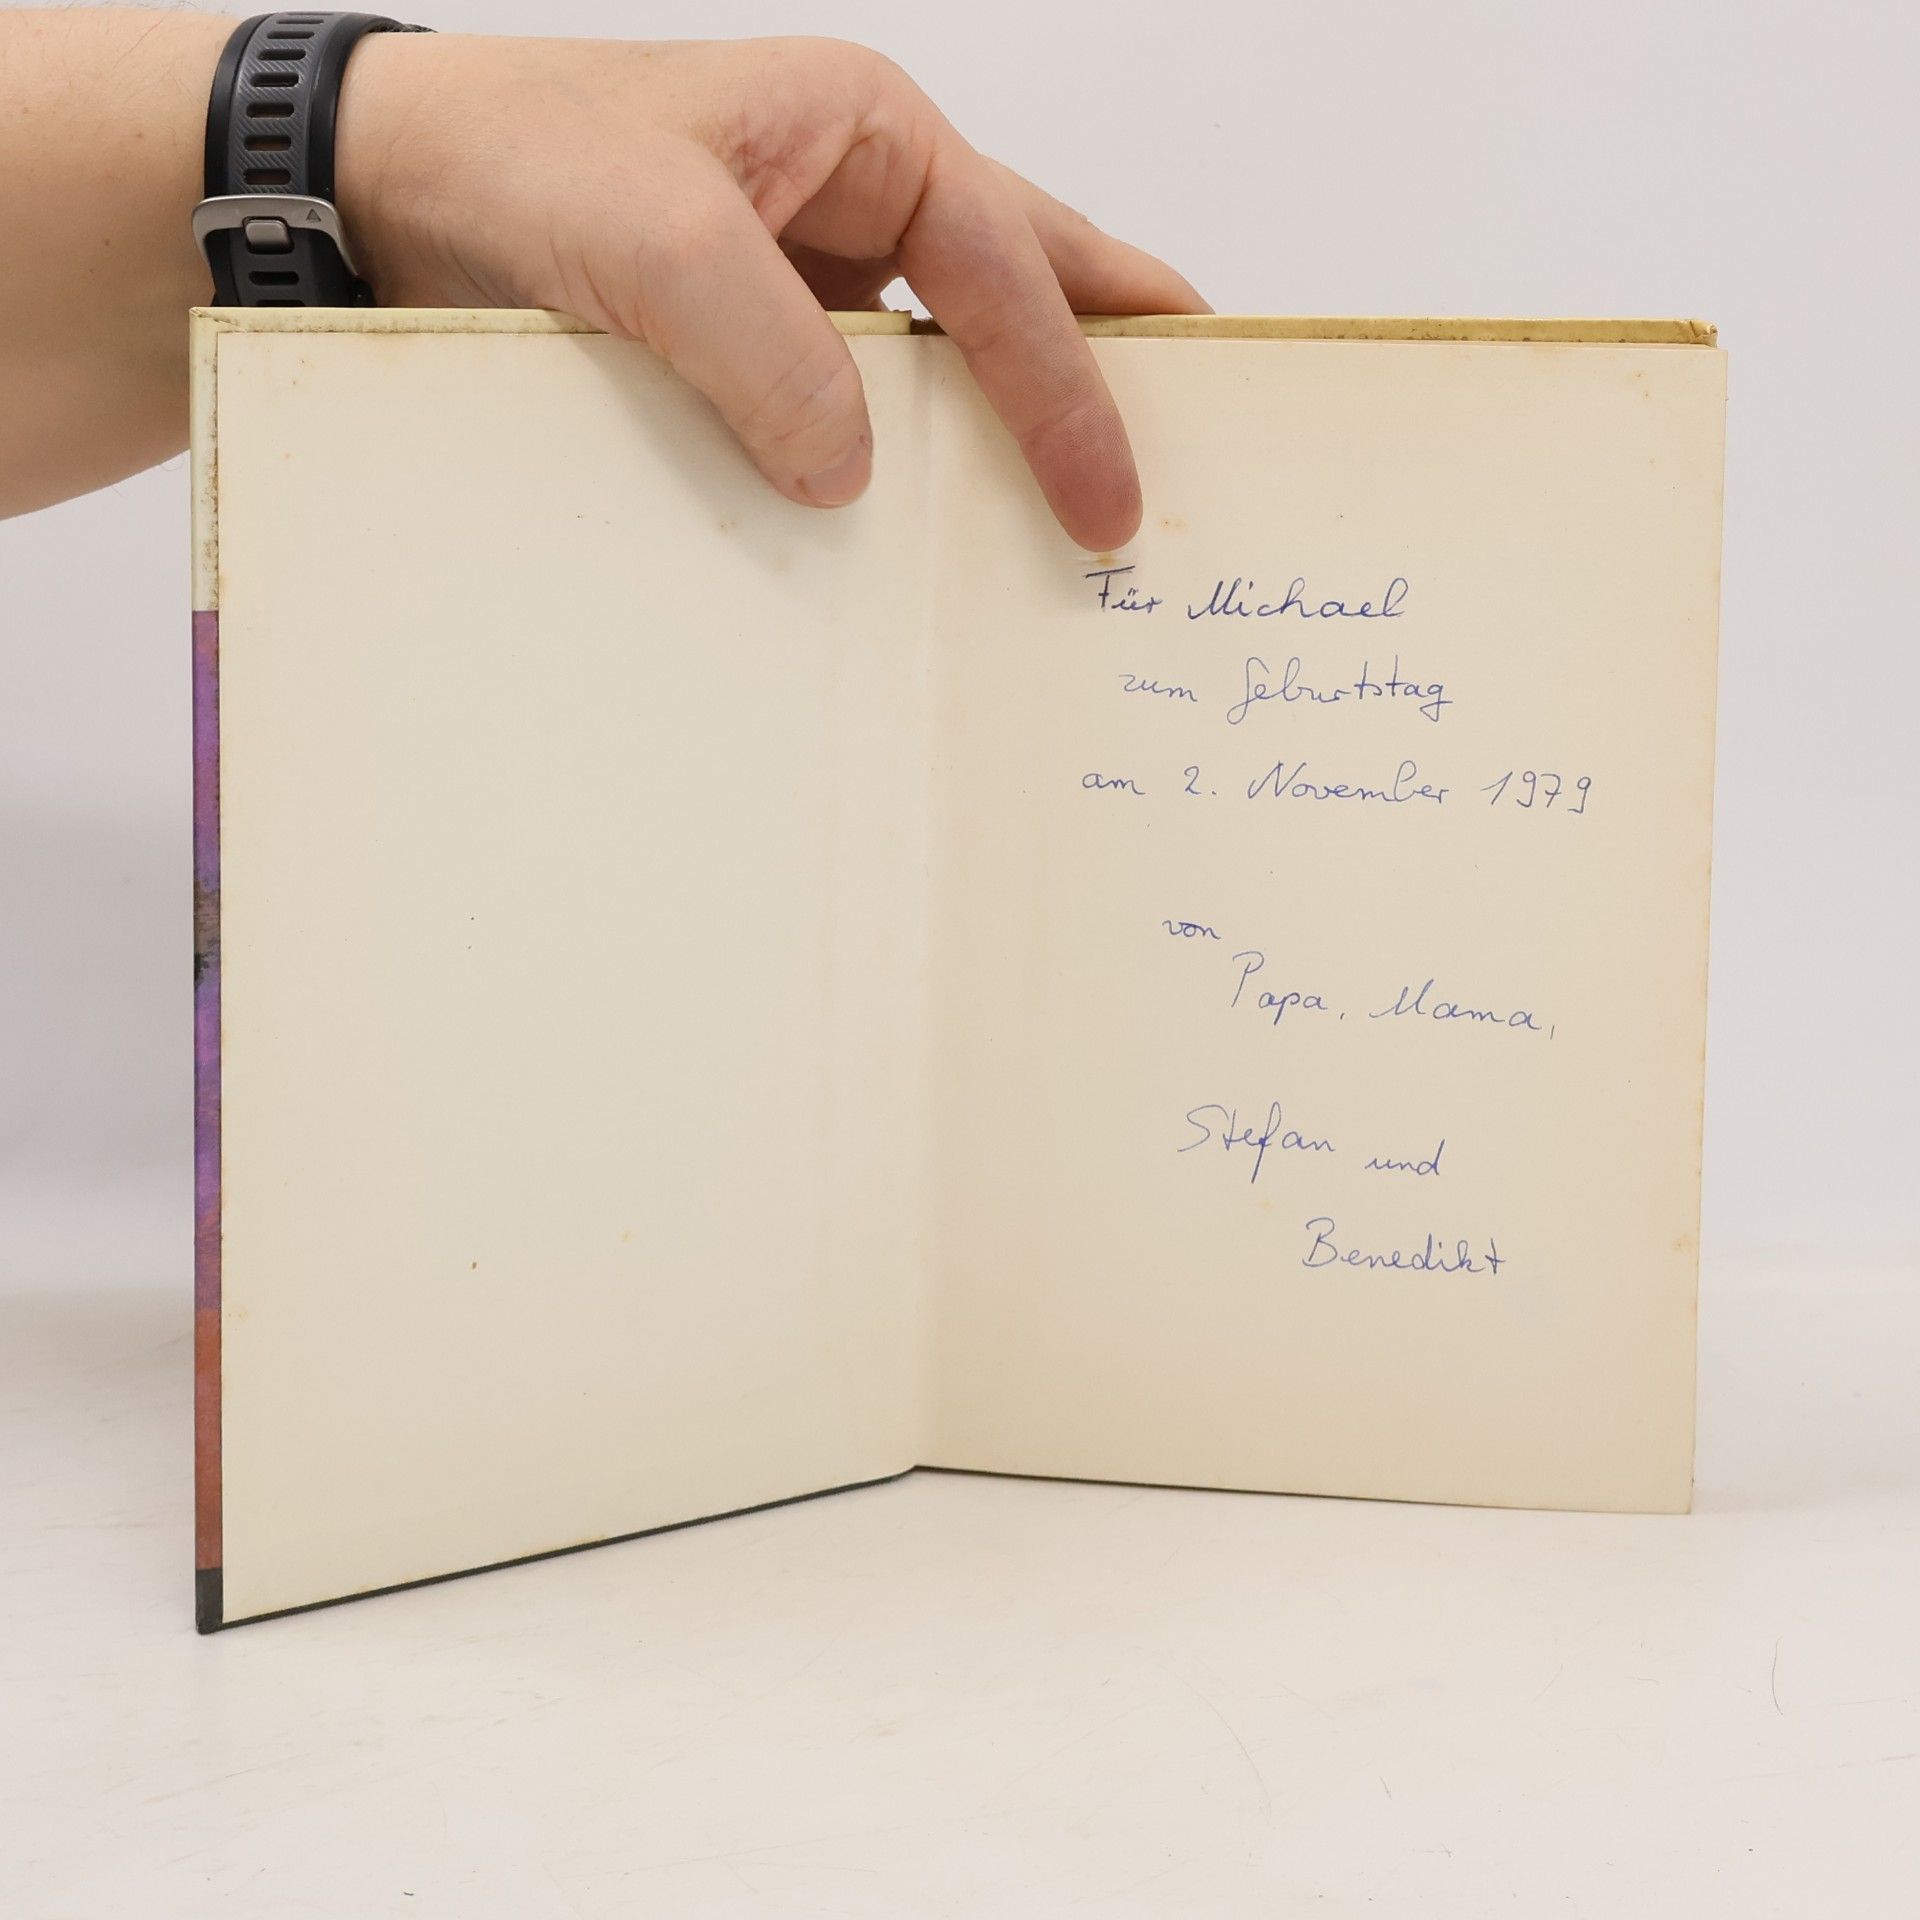 Für Michael
zum Geburtstag
am 2. November 1979
von
Papa, Mama,
Stefan und
Benedikt